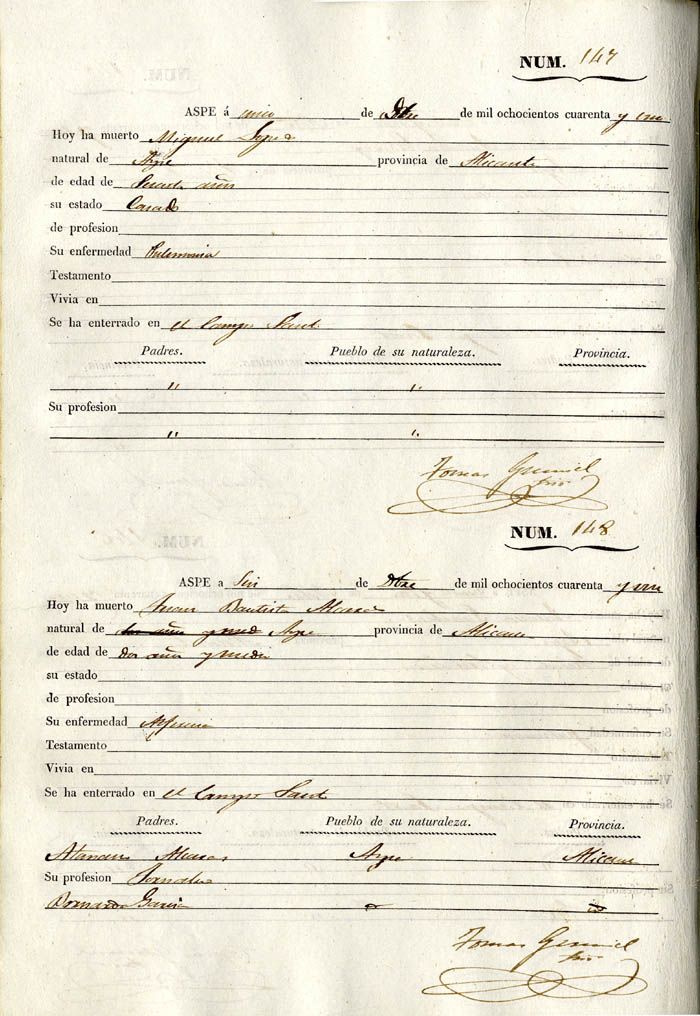 NUM. 147
ASPE á cinco de Dbre de mil ochocientos cuarenta y uno
Hoy ha muerto Miguel Lopez
natural de Aspe provincia de Alicante
de edad de años
su estado Casado
de profesion
Su enfermedad Pulmonia
Testamento
Vivia en
Se ha enterrado en el Campo Santo
Padres. Pueblo de su naturaleza. Provincia.
" "
Su profesion
" "
Tomas
NUM. 148
ASPE a Seis de Dbre de mil ochocientos cuarenta y uno
Hoy ha muerto Juan Bautista
natural de dos años y medio Aspe provincia de Alicante
de edad de dos años y medio
su estado
de profesion
Su enfermedad
Testamento
Vivia en
Se ha enterrado en el Campo Santo
Padres. Pueblo de su naturaleza. Provincia.
Aspe Alicante
Su profesion Jornalero
Bernarda Garcia
Tomas